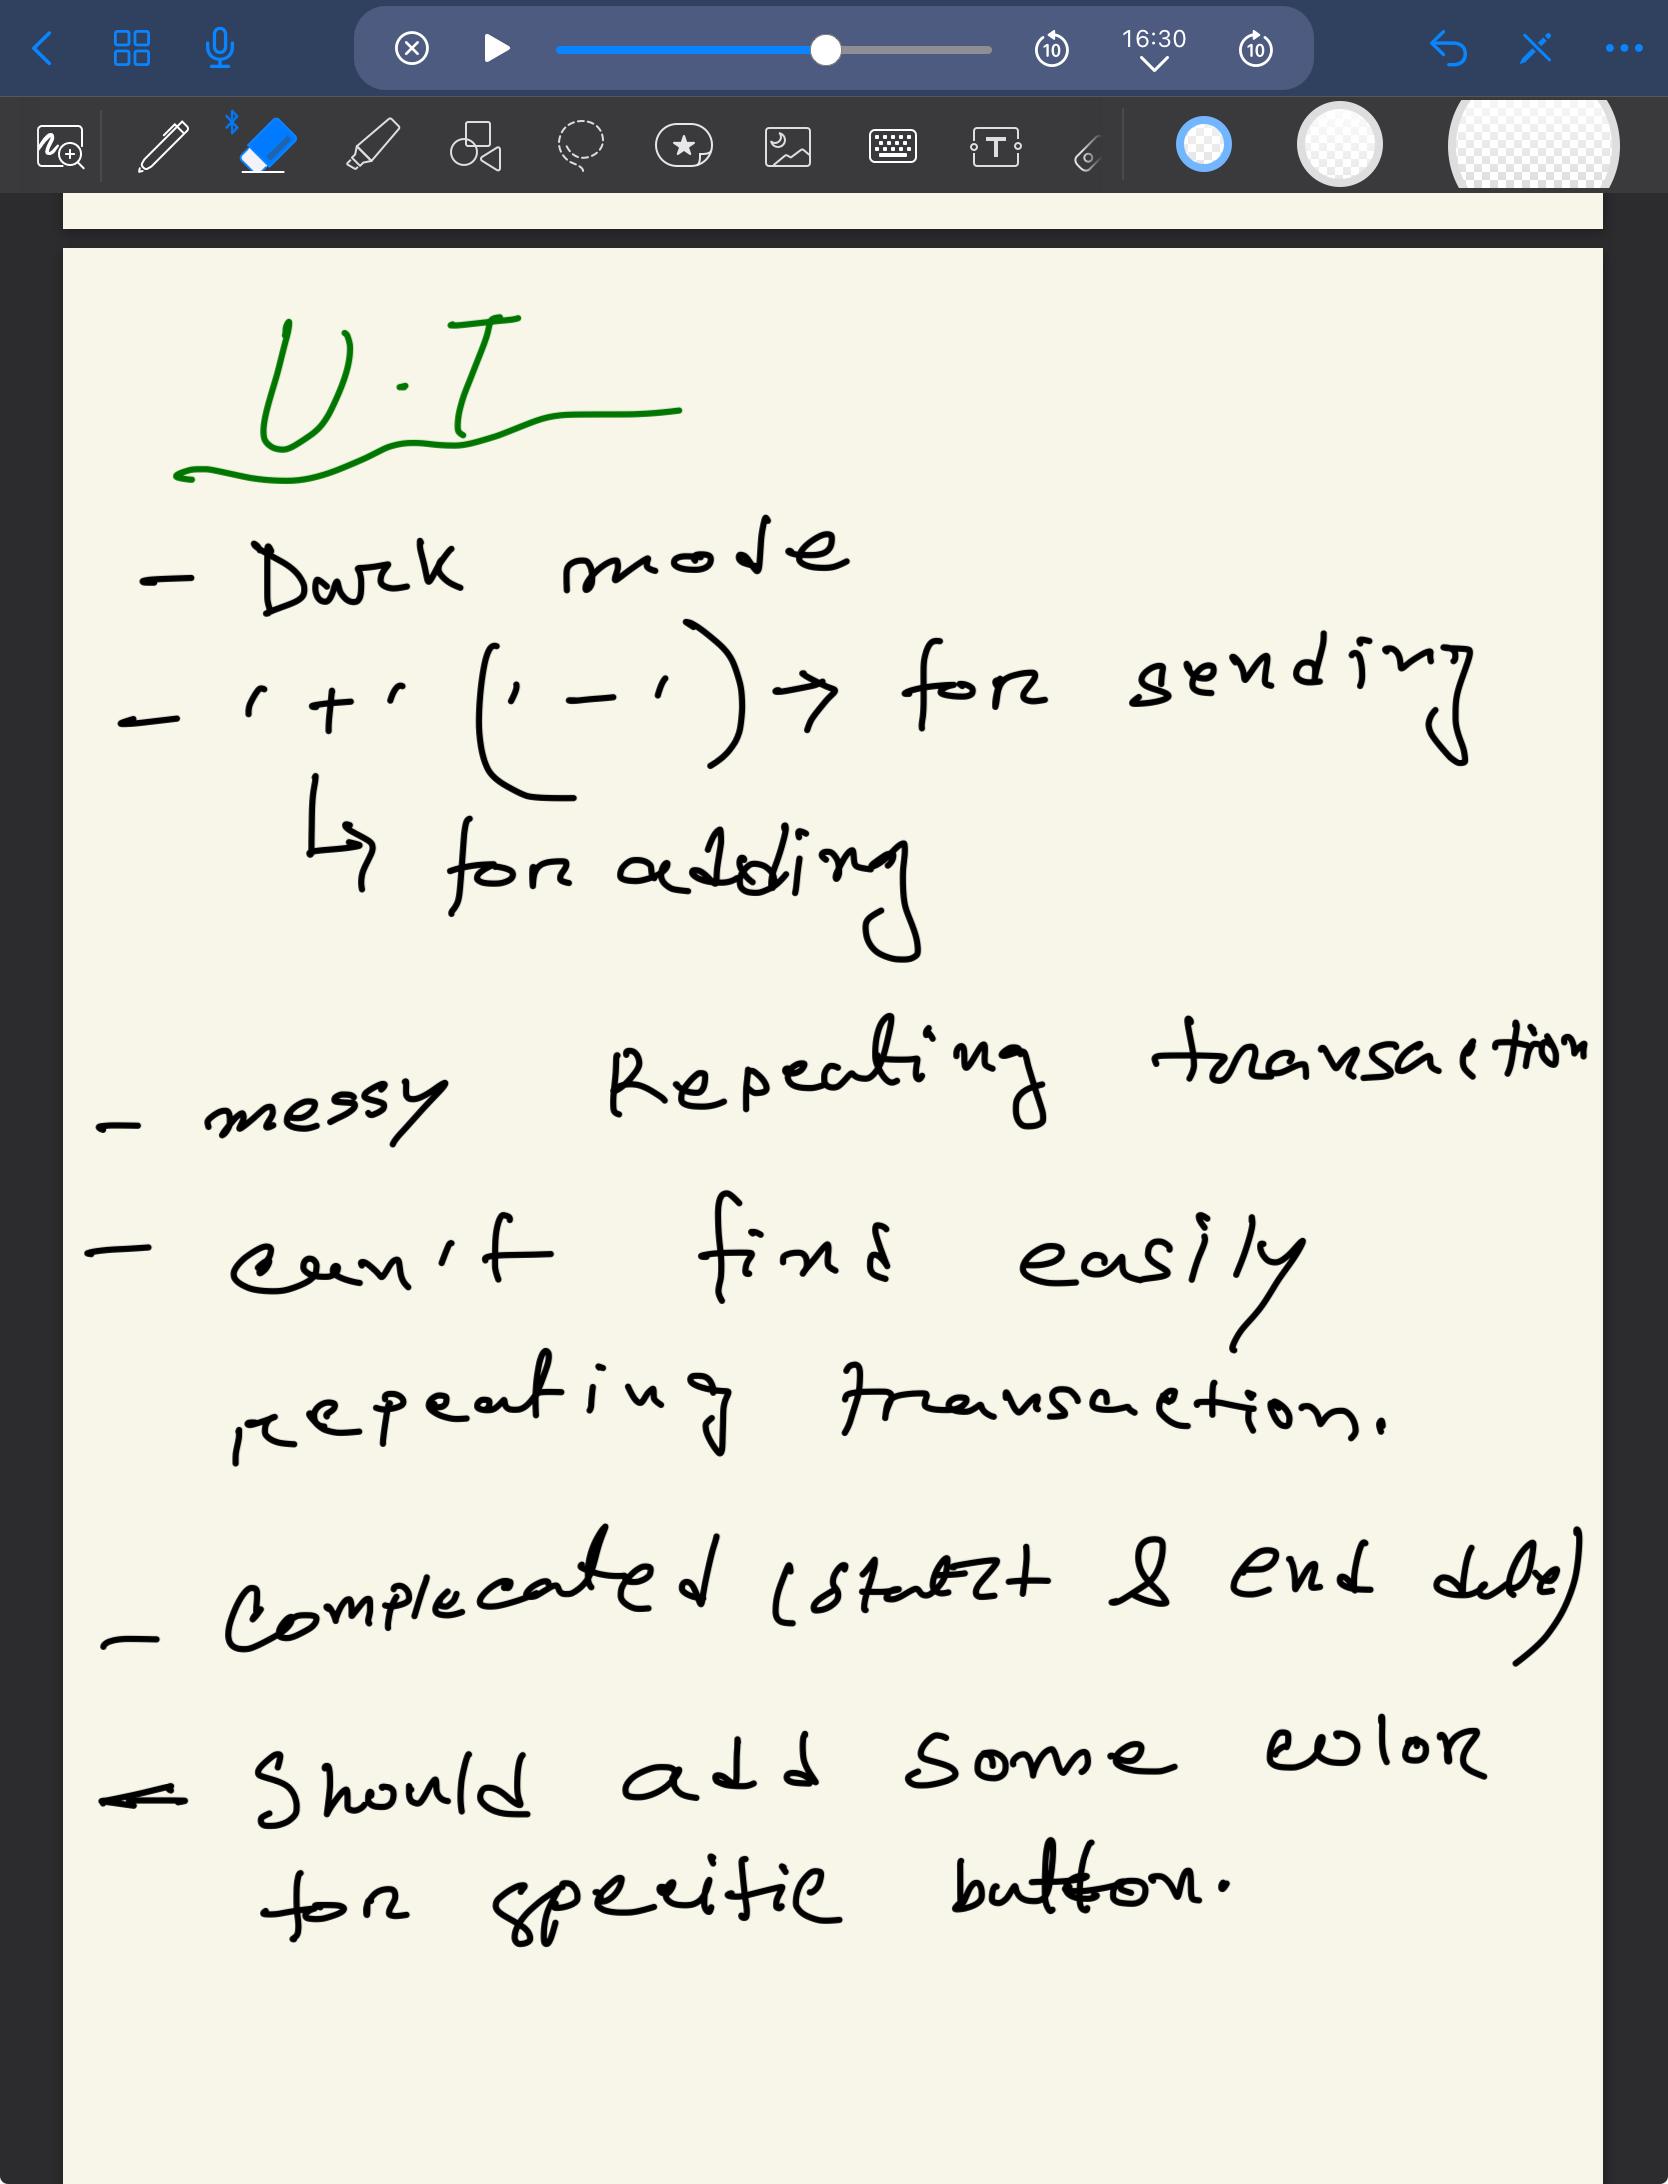 16:30
U.I
- Dark mode
- '+' ('-') → for sending
↳ for adding
- messy Repeating transaction
- can't find easily
repeating transaction.
- Complecated (start & end date)
- Should add some color
for specific button.